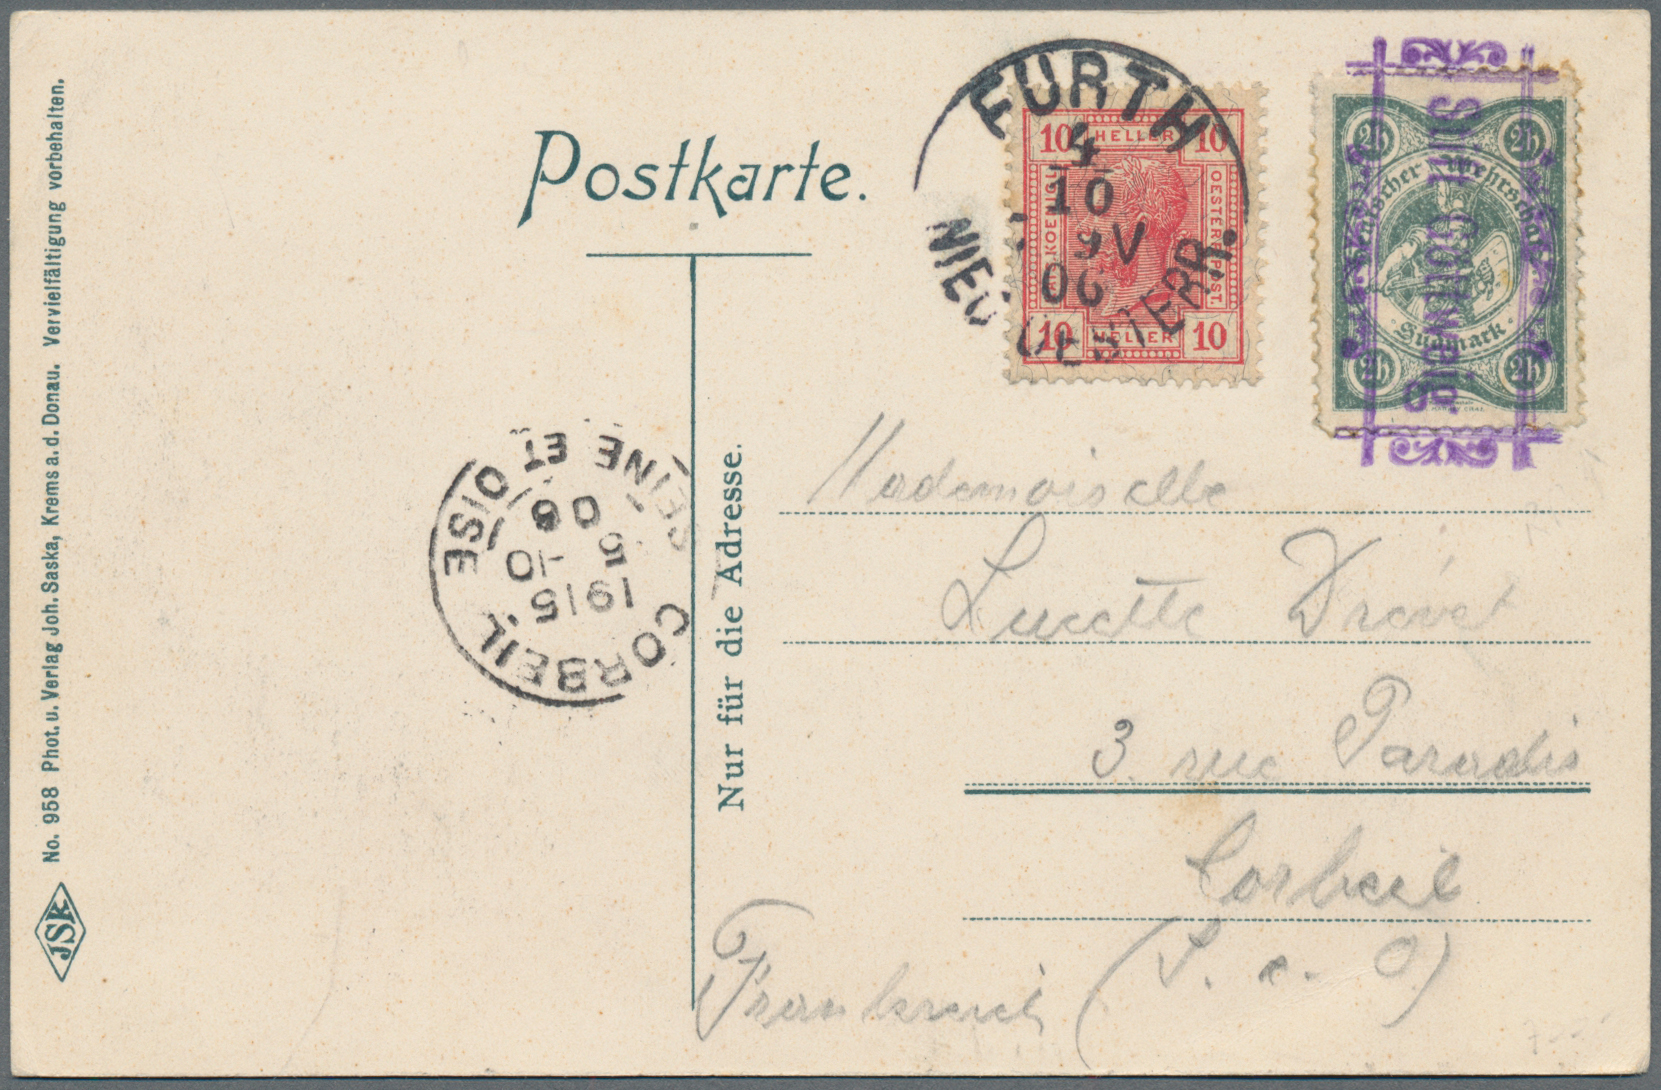 Postkarte.
FURTH
4
10
9V
06
NIED OESTERR.
10 HELLER 10
KOENIGL
OESTERR.POST.
10 HELLER 10
2h 2h
Deutscher Wehrschatz
Südmark
2h 2h
No. 958 Phot. u. Verlag Joh. Saska, Krems a. d. Donau. Vervielfältigung vorbehalten.
JSK
Nur für die Adresse.
CORBEIL
1915
5 -10
06
SEINE ET OISE
Mademoiselle
Lucette Drevet
3. rue Paradis
Corbeil
(S. e. O)
Frankreich